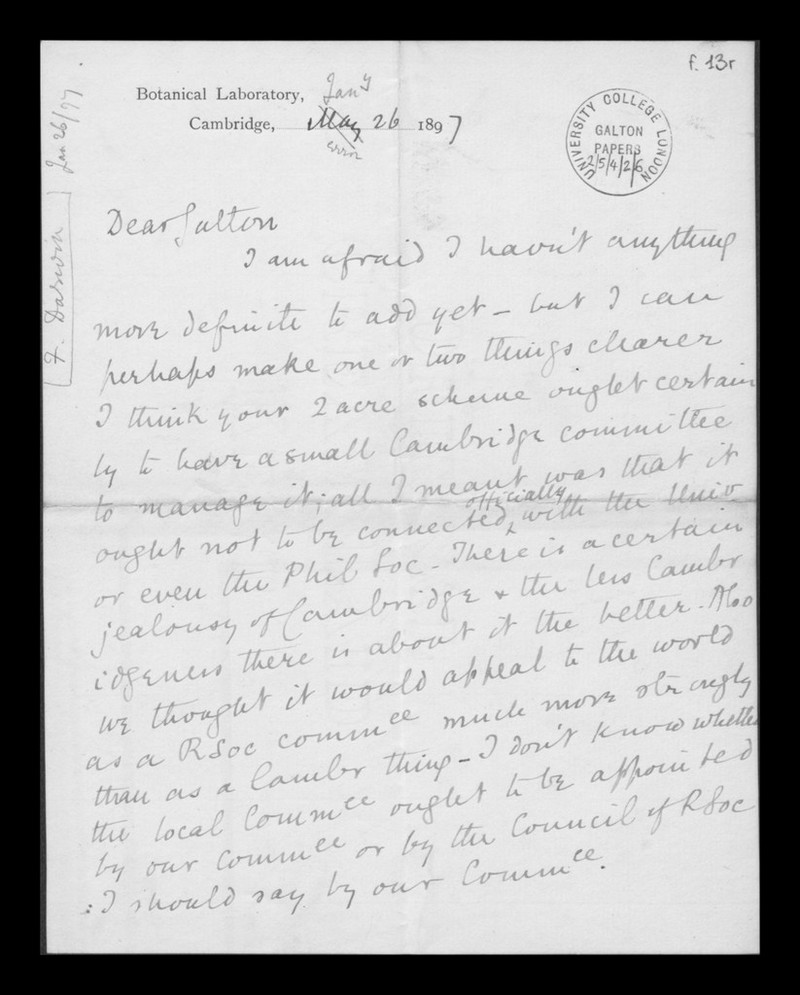 f. 13r
Botanical Laboratory,
Jany
Cambridge, May 26 1897
error
UNIVERSITY COLLEGE LONDON
GALTON
PAPERS
2/5/4/2/6
F. Darwin] Jan 26/97
Dear Galton
I am afraid I havn't anything
more definite to add yet – but I can
perhaps make one or two things clearer
I think your 2 acre scheme ought certain
ly to have a small Cambridge committee
to manage it; all I meant was that it
officially
ought not to be connected, with the Univ.
or even the Phil Soc – There is a certain
jealousy of Cambridge & the less Cambr
idgeness there is about it the better. Also
we thought it would appeal to the world
as a RSoc commee much more strongly
than as a Cambr thing – I don't know whether
the local Commee ought to be appointed
by our Commee or by the Council of RSoc
: I should say by our Commee.